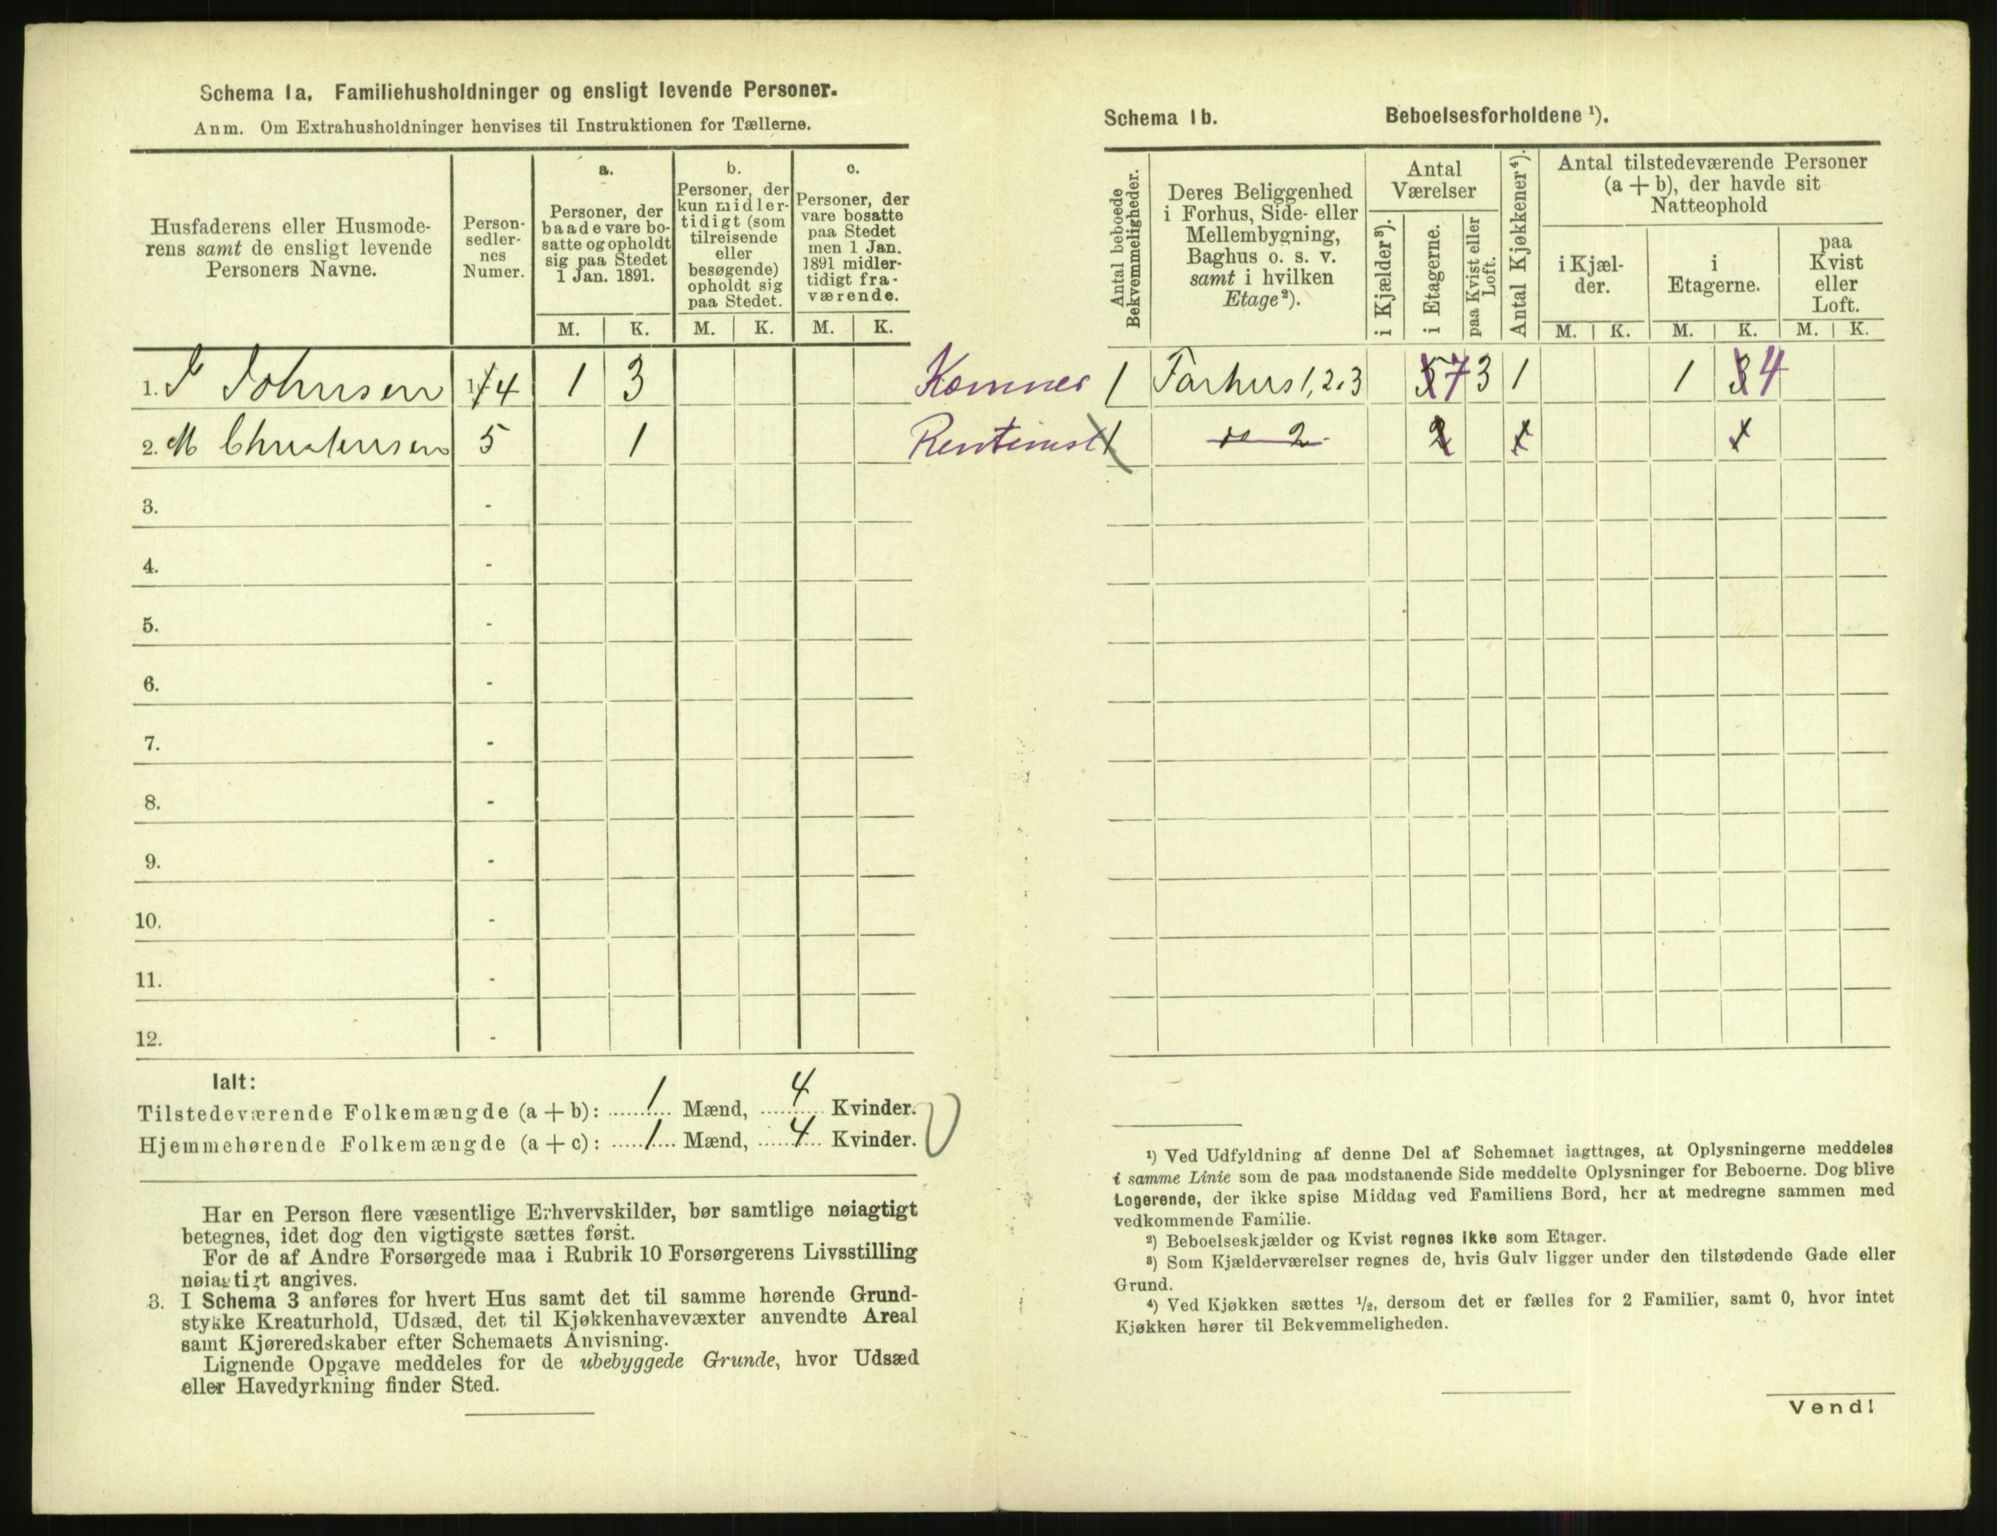 Schema 1a. Familiehusholdninger og ensligt levende Personer.
Anm. Om Extrahusholdninger henvises til Instruktionen for Tællerne.
Husfaderens eller Husmode-
rens samt de ensligt levende
Personers Navne.
Person-
sedler-
nes
Numer.
a.
Personer, der
baade vare bo-
satte og opholdt
sig paa Stedet
1 Jan. 1891.
b.
Personer, der
kun midler-
tidigt (som
tilreisende
eller
besøgende)
opholdt sig
paa Stedet.
c.
Personer, der
vare bosatte
paa Stedet
men 1 Jan.
1891 midler-
tidigt fra-
værende.
M. K. M. K. M. K.
1. J Johnsen 4 1 3 Kæmner
2. M Christensen 5 1 Rentenist
3. -
4. -
5. -
6. -
7. -
8. -
9. -
10. -
11. -
12. -
Ialt:
Tilstedeværende Folkemængde (a + b): 1 Mænd, 4 Kvinder.
Hjemmehørende Folkemængde (a + c): 1 Mænd, 4 Kvinder.
Har en Person flere væsentlige Erhvervskilder, bør samtlige nøiagtigt
betegnes, idet dog den vigtigste sættes først.
For de af Andre Forsørgede maa i Rubrik 10 Forsørgerens Livsstilling
nøiagtigt angives.
3. I Schema 3 anføres for hvert Hus samt det til samme hørende Grund-
stykke Kreaturhold, Udsæd, det til Kjøkkenhavevæxter anvendte Areal
samt Kjøreredskaber efter Schemaets Anvisning.
Lignende Opgave meddeles for de ubebyggede Grunde, hvor Udsæd
eller Havedyrkning finder Sted.
Schema 1b. Beboelsesforholdene ¹).
Antal beboede
Bekvemmeligheder.
Deres Beliggenhed
i Forhus, Side- eller
Mellembygning,
Baghus o. s. v.
samt i hvilken
Etage ²).
Antal
Værelser
i Kjælder ³).
i Etagerne.
paa Kvist eller
Loft.
Antal Kjøkkener ⁴).
Antal tilstedeværende Personer
(a + b), der havde sit
Natteophold
i Kjæl-
der.
i
Etagerne.
paa
Kvist
eller
Loft.
M. K. M. K. M. K.
1 Forhus 1, 2, 3 5 7 3 1 1 3 4
1 do 2 2 1 1
¹) Ved Udfyldning af denne Del af Schemaet iagttages, at Oplysningerne meddeles
i samme Linie som de paa modstaaende Side meddelte Oplysninger for Beboerne. Dog blive
Logerende, der ikke spise Middag ved Familiens Bord, her at medregne sammen med
vedkommende Familie.
²) Beboelseskjælder og Kvist regnes ikke som Etager.
³) Som Kjælderværelser regnes de, hvis Gulv ligger under den tilstødende Gade eller
Grund.
⁴) Ved Kjøkken sættes ½, dersom det er fælles for 2 Familier, samt 0, hvor intet
Kjøkken hører til Bekvemmeligheden.
Vend!